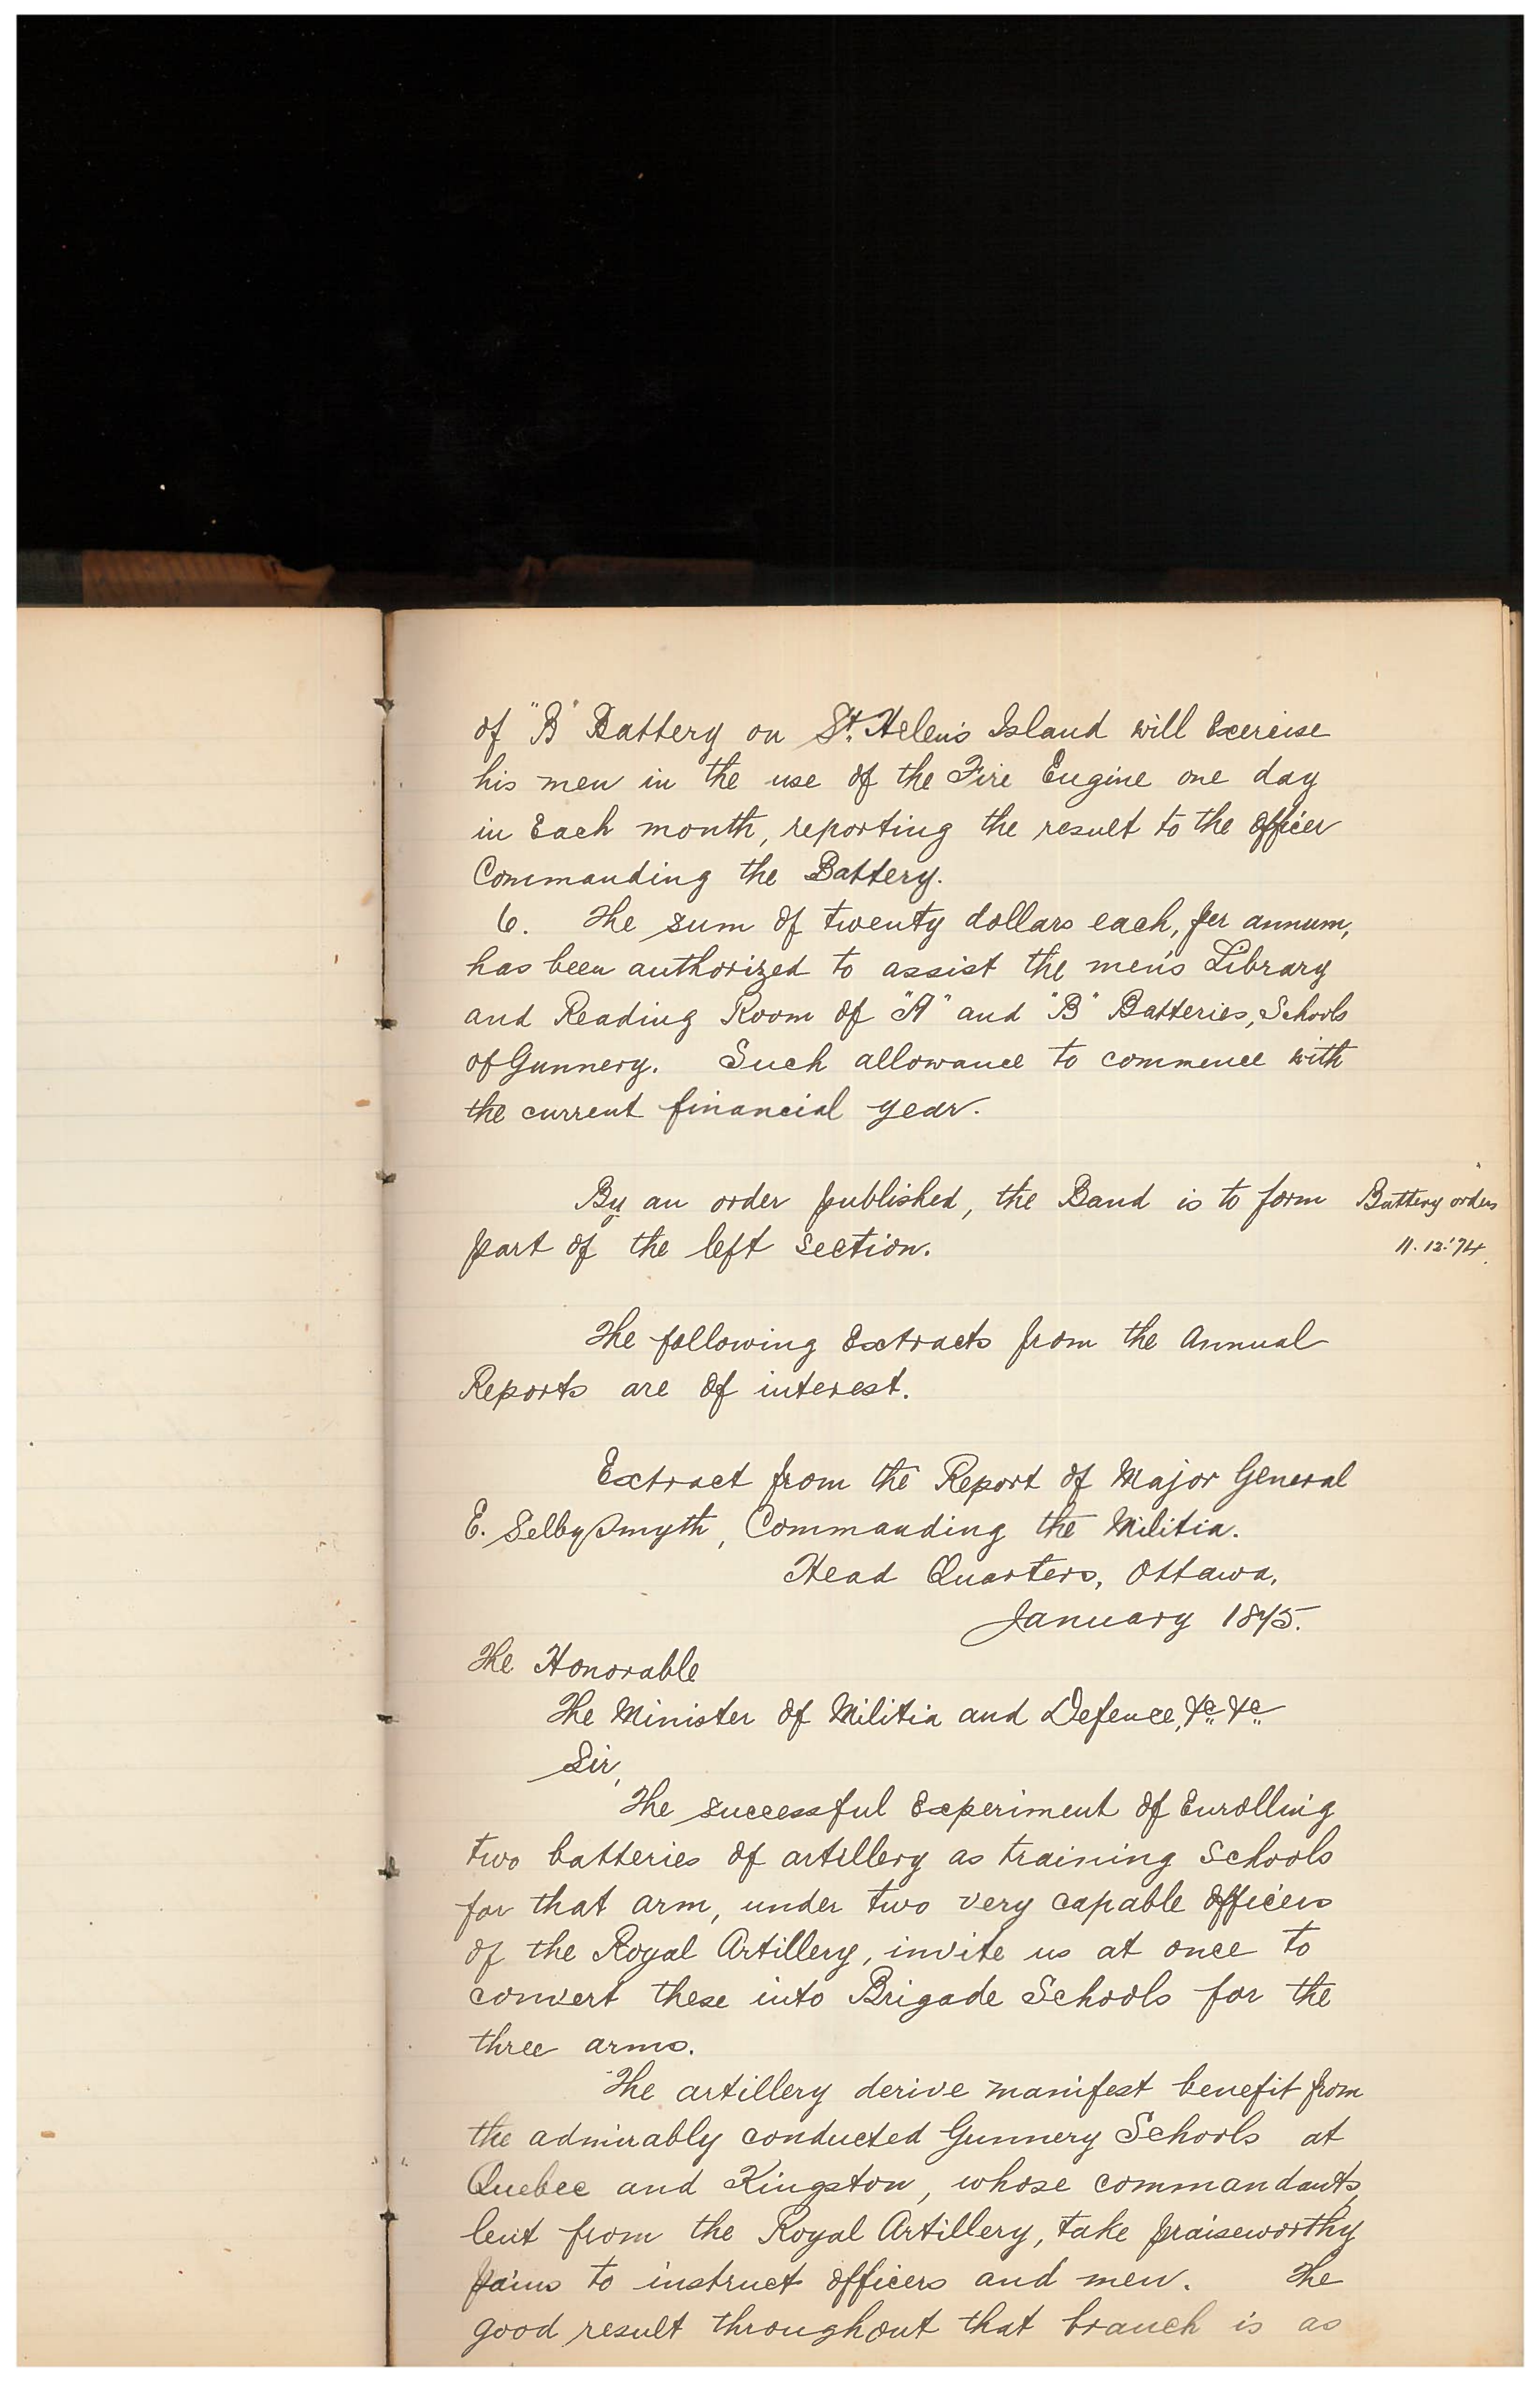 of "B" Battery on St. Helen's Island will Exercise
his men in the use of the Fire Engine one day
in Each month, reporting the result to the Officer
Commanding the Battery.
6. The sum of twenty dollars each, per annum,
has been authorized to assist the men's Library
and Reading Room of "A" and "B" Batteries, Schools
of Gunnery. Such allowance to commence with
the current financial year.
By an order published, the Band is to form
part of the left section.
Battery orders
11.12.'74.
The following Extracts from the Annual
Reports are of interest.
Extract from the Report of Major General
E. Selby Smyth, Commanding the Militia.
Head Quarters, Ottawa,
January 1875.
The Honorable
The Minister of Militia and Defence, &c &c
Sir,
The successful Experiment of Enrolling
two batteries of artillery as training Schools
for that arm, under two very capable Officers
of the Royal Artillery, invite us at once to
convert these into Brigade Schools for the
three arms.
The artillery derive manifest benefit from
the admirably conducted Gunnery Schools at
Quebec and Kingston, whose commandants,
lent from the Royal Artillery, take praiseworthy
pains to instruct Officers and men. The
good result throughout that branch is as